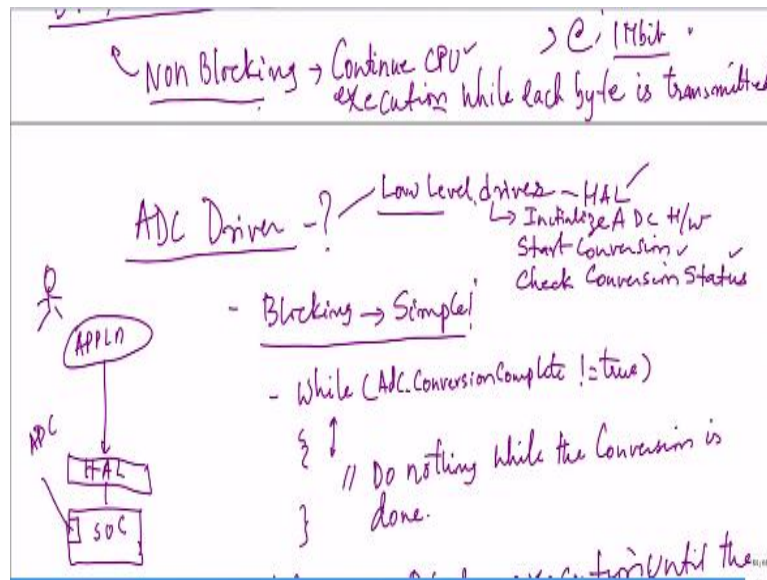 Non Blocking → Continue CPU ✓ > @ 1Mbit.
execution while each byte is transmitted
ADC Driver -? Low Level driver - HAL ✓
↳ Initialize ADC H/W
Start Conversion ✓
Check Conversion Status ✓
- Blocking → Simple!
APPLN
- While (Adc.ConversionComplete != true)
{
// Do nothing while the Conversion is
done.
}
ADC
HAL
SOC
execution until the